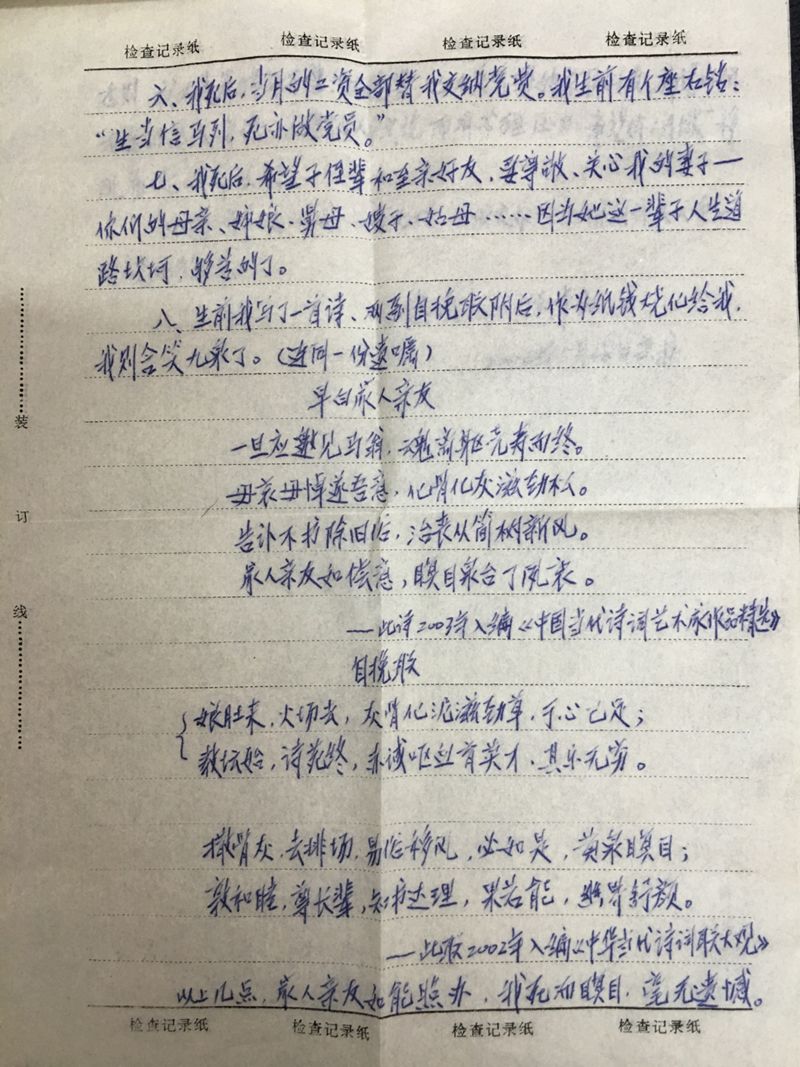 检查记录纸 检查记录纸 检查记录纸 检查记录纸
六、我死后,当月的工资全部替我交纳党费。我生前有个座右铭:
“生当信马列,死亦做党员。”
七、我死后,希望子侄辈和至亲好友,要尊敬、关心我的妻子——
你们的母亲、婶娘、舅母、嫂子、姑母……因为她这一辈子人生道
路坎坷,够苦的了。
八、生前我写了一首诗、两副自挽联附后,作为纸钱烧化给我,
我则含笑九泉了。(连同一份遗嘱)
早白家人亲友
一旦应邀见马翁,魂离躯壳寿而终。
毋哀毋悼遂吾意,化骨化灰滋劲松。
告讣不扩除旧俗,治丧从简树新风。
家人亲友如偿意,瞑目泉台了夙衷。
——此诗2003年入编《中国当代诗词艺术家作品精选》
自挽联
娘肚来,火场去,灰骨化泥滋劲草,于心已足;
教坛始,诗苑终,赤诚呕血育英才,其乐无穷。
撒骨灰,去排场,易俗移风,必如是,黄泉瞑目;
敦和睦,尊长辈,知书达理,果若能,幽界舒颜。
——此联2002年入编《中华当代诗词联大观》
以上几点,家人亲友如能照办,我死而瞑目,毫无遗憾。
检查记录纸 检查记录纸 检查记录纸 检查记录纸
装
订
线